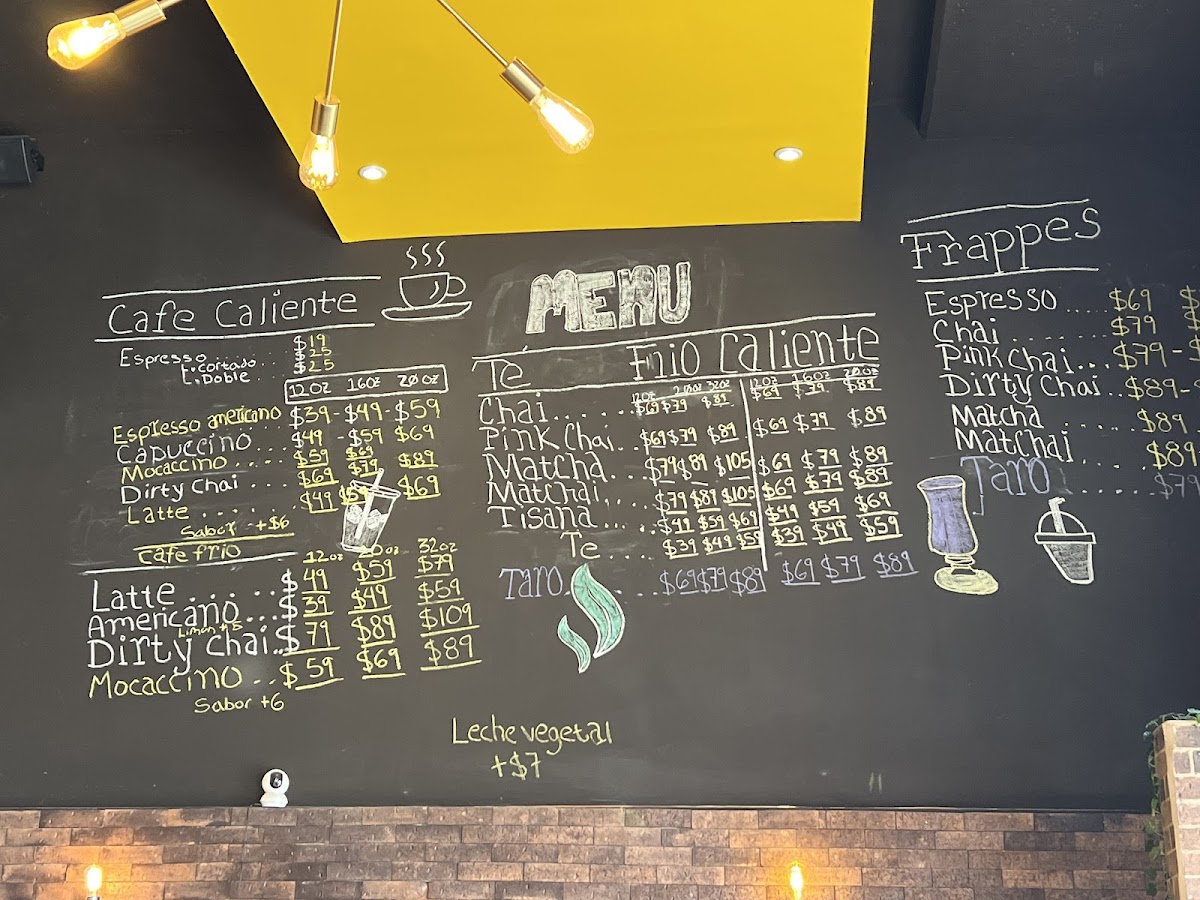 MENU
Cafe Caliente
Espresso $19
E. cortado .. $25
E. Doble ... $25
12oz 16oz 20oz
Espresso americano .. $39 - $49 - $59
Capuccino .... $49 - $59 $69
Mocaccino .... $59 $69
Dirty Chai ... $69 $79 $89
Latte ....... $49 $59 $69
Sabor - +$6
Cafe frio
12oz 20oz 32oz
Latte ...... $49 $59 $79
Americano .. $39 $49 $59
Limon + 5
Dirty Chai .. $79 $89 $109
Mocaccino .. $59 $69 $89
Sabor +6
Té Frio Caliente
12oz 20oz 32oz 12oz 16oz 20oz
Chai ...... $69 $79 $89 $69 $79 $89
Pink Chai .. $69 $79 $89 $69 $79 $89
Matcha .. $79 $89 $105 $69 $79 $89
Matchai .. $79 $89 $105 $69 $79 $89
Tisana .... $49 $59 $69 $49 $59 $69
Te .... $39 $49 $59 $39 $49 $59
Taro ...... $69 $79 $89 $69 $79 $89
Leche vegetal
+$7
Frappes
Espresso ..... $69
Chai ....... $79
Pink Chai ... $79 -
Dirty Chai .. $89 -
Matcha ...... $89
Matchai .... $89
Taro ....... $79